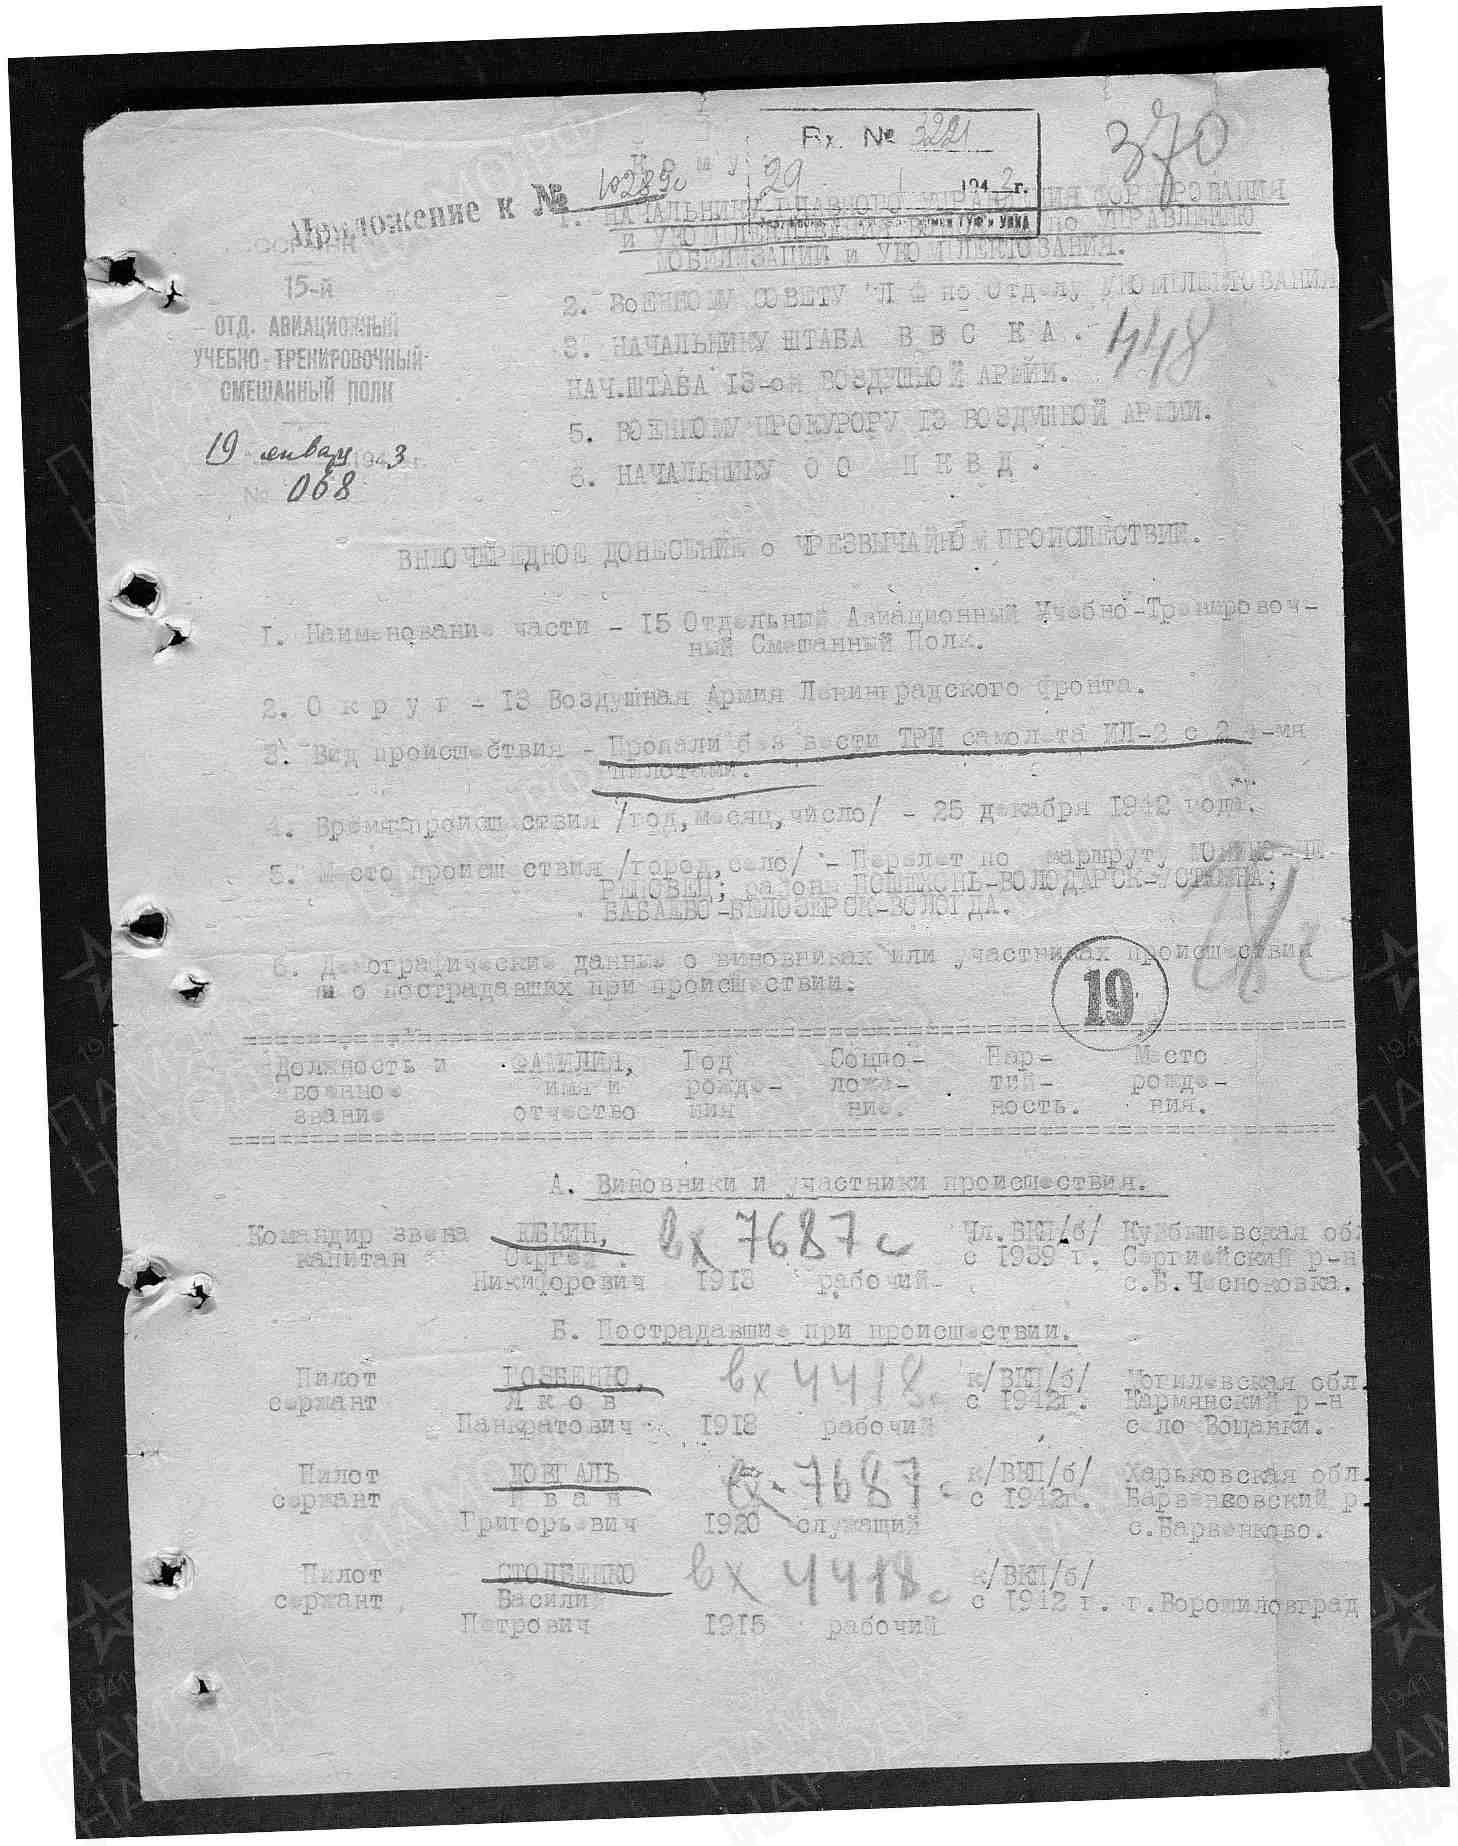 Вх. № 3221
370
К о м у :
29 1 1942 г.
Приложение к № 10289с
1. НАЧАЛЬНИКУ ГЛАВНОГО УПРАВЛЕНИЯ ФОРМИРОВАНИЯ
и УКОМПЛЕКТОВАНИЯ по УПРАВЛЕНИЮ
МОБИЛИЗАЦИИ и УКОМПЛЕКТОВАНИЯ.
15-й
ОТД. АВИАЦИОННЫЙ
УЧЕБНО-ТРЕНИРОВОЧНЫЙ
СМЕШАННЫЙ ПОЛК
19 января 1943 г.
№ 068
2. ВОЕННОМУ СОВЕТУ ЛФ по Отделу УКОМПЛЕКТОВАНИЯ
3. НАЧАЛЬНИКУ ШТАБА В В С К А .
448
НАЧ.ШТАБА 13-ой ВОЗДУШНОЙ АРМИИ.
5. ВОЕННОМУ ПРОКУРОРУ 13 ВОЗДУШНОЙ АРМИИ.
6. НАЧАЛЬНИКУ О О Н К В Д .
ВНЕОЧЕРЕДНОЕ ДОНЕСЕНИЕ о ЧРЕЗВЫЧАЙНОМ ПРОИСШЕСТВИИ.
1. Наименование части - 15 Отдельный Авиационный Учебно-Тренировоч-
ный Смешанный Полк.
2. О к р у г - 13 Воздушная Армия Ленинградского фронта.
3. Вид происшествия - Пропали без вести ТРИ самолета ИЛ-2 с 4-мя
пилотами.
4. Время происшествия /год,месяц,число/ - 25 декабря 1942 года.
5. Место происшествия /город,село/ - Перелет по маршруту
РЕПОВЕЦ; районы ПОШЕХОНЬ-ВОЛОДАРСК-УСТЮЖНА;
БАБАЕВО-БЕЛОЗЕРСК-ВОЛОГДА.
6. Демографические данные о виновниках или участниках происшествия
и о пострадавших при происшествии:
19
Должность и ФАМИЛИЯ, Год Соцпо- Пар- Место
военное имя и рожде- ложе- тий- рожде-
звание отчество ния ние. ность. ния.
А. Виновники и участники происшествия.
Командир звена КЕКИН, вх 7687с Чл.ВКП/б/ Куйбышевская обл
капитан Сергей с 1939 г. Сергиейский р-н
Никифорович 1913 рабочий с.Б.Чесноковка.
Б. Пострадавшие при происшествии.
Пилот ГОЗБЕНКО, вх 4418с к/ВКП/б/ Могилевская обл.
сержант Я к о в с 1942г. Кармянский р-н
Панкратович 1918 рабочий село Вощанки.
Пилот ДОВГАЛЬ 7687с к/ВКП/б/ Харьковская обл.
сержант И в а н с 1942г. Барвенковский р.
Григорьевич 1920 служащий с.Барвенково.
Пилот СТОЛЕШКО вх 4418с к/ВКП/б/
сержант Василий с 1942 г. г.Ворошиловград
Петрович 1915 рабочий